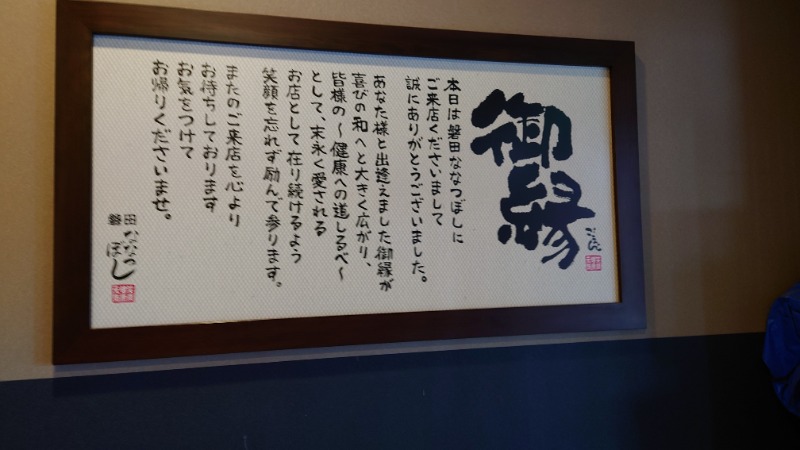 御縁
ごえん
本日は磐田ななつぼしに
ご来店くださいまして
誠にありがとうございました。
あなた様と出逢えました御縁が
喜びの和へと大きく広がり、
皆様の〜健康への道しるべ〜
として、末永く愛される
お店として在り続けるよう
笑顔を忘れず励んで参ります。
またのご来店を心より
お待ちしております
お気をつけて
お帰りくださいませ。
磐田
ななつぼし